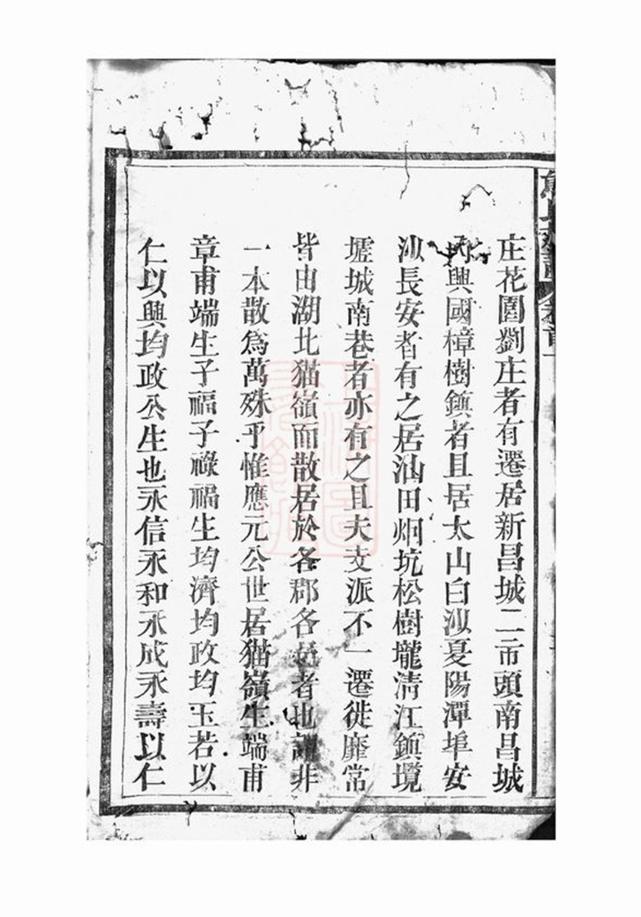 庄花園劉庄者有遷居新昌城二市頭南昌城
興國樟樹鎮者且居太山白汊夏陽潭埠安
汊長安者有之居汕田烱坑松樹壠清江鎮境
壢城南巷者亦有之且夫支派不一遷徙靡常
皆由湖北猫嶺而散居於各郡各邑者也謂非
一本散為萬殊乎惟應元公世居猫嶺生端甫
章甫端生子福子祿福生均濟均政均玉若以
仁以興均政公生也永信永和永成永壽以仁